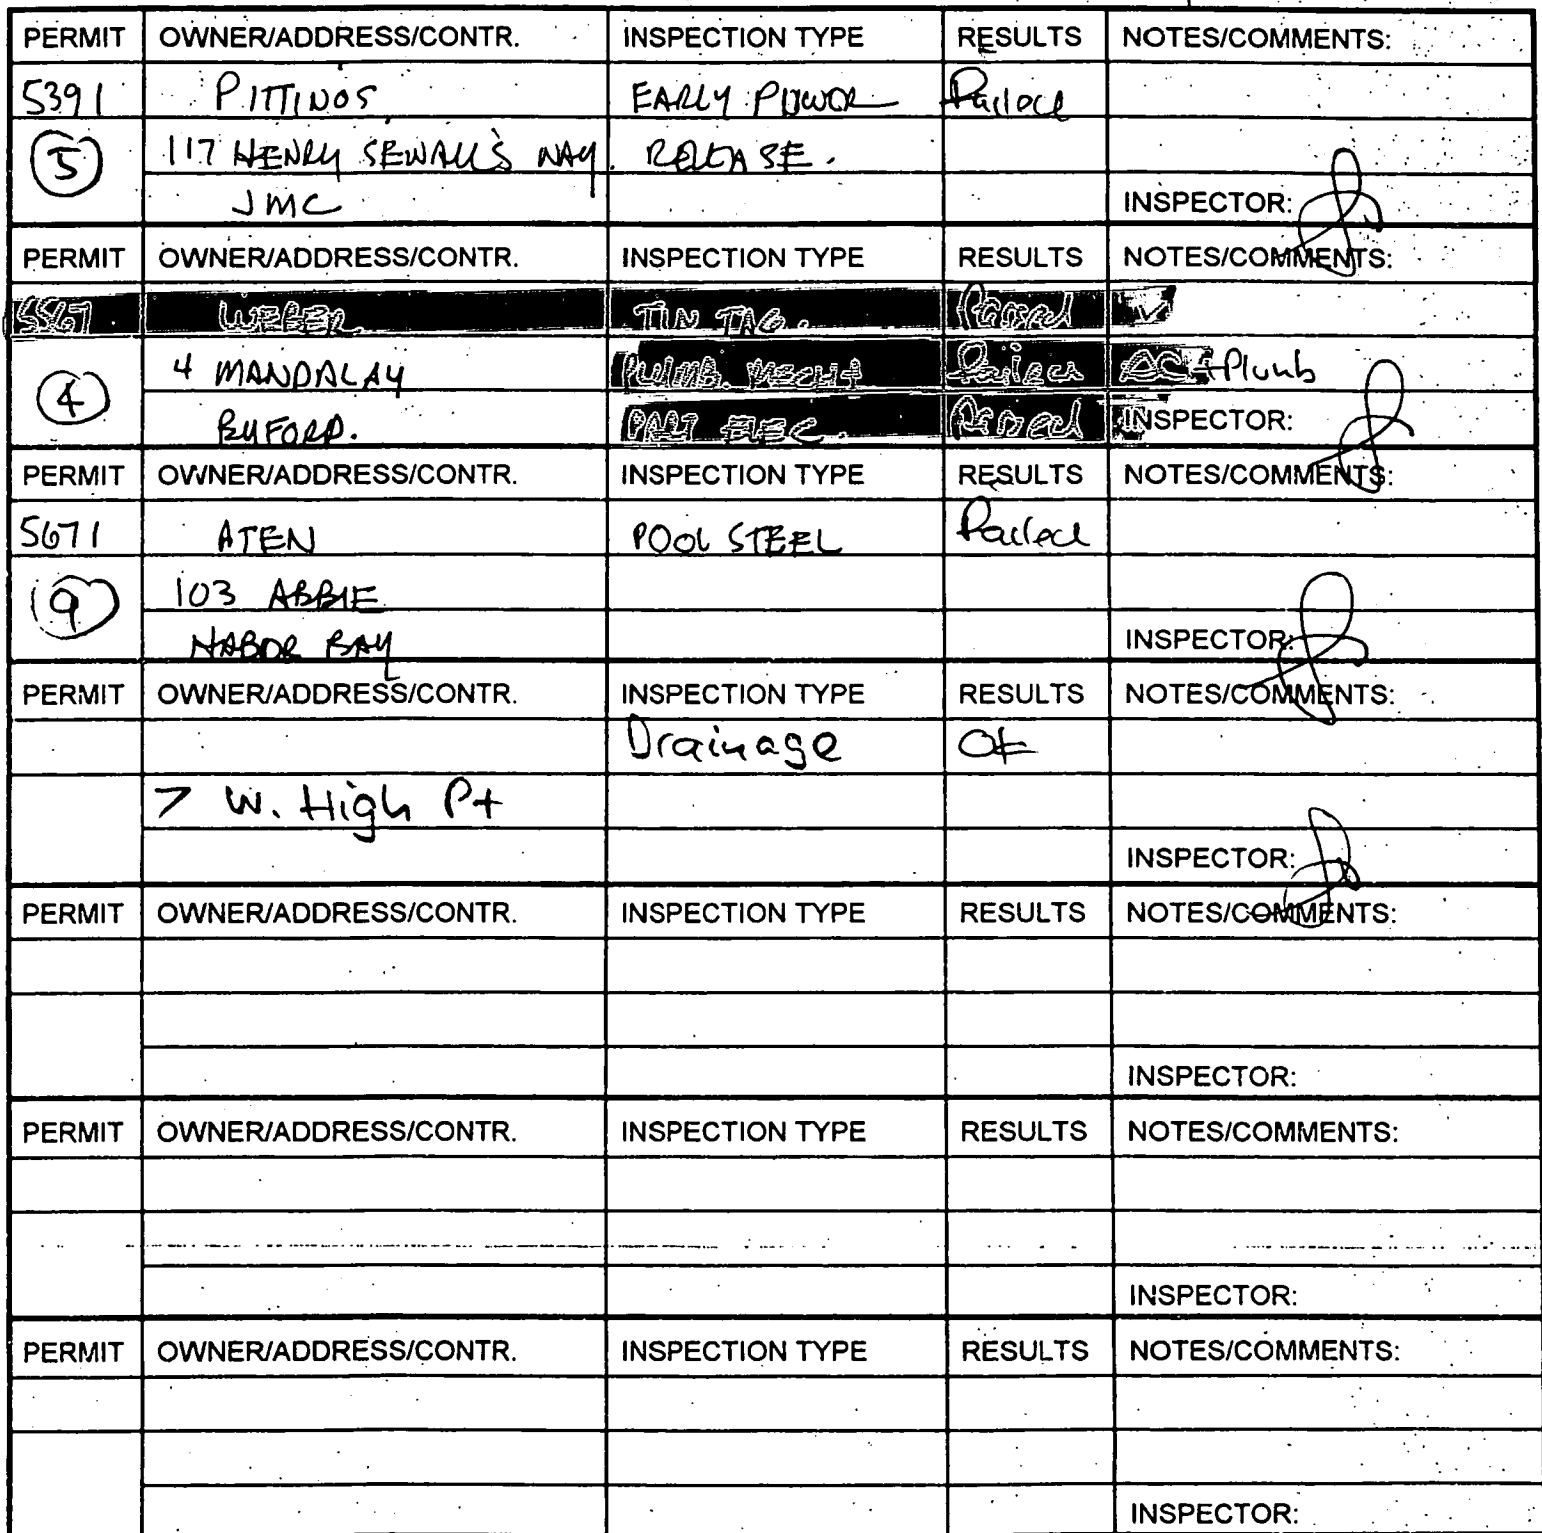 PERMIT OWNER/ADDRESS/CONTR. INSPECTION TYPE RESULTS NOTES/COMMENTS:
5391 PITTINOS EARLY POWER
5 117 HENRY SEWALL'S WAY. RELEASE.
JMC INSPECTOR:
PERMIT OWNER/ADDRESS/CONTR. INSPECTION TYPE RESULTS NOTES/COMMENTS:
5567 WEBER TIN TAG. Passed
4 4 MANDALAY PLUMB. MECH + AC + Plumb
BUFORD. PART ELEC. Passed INSPECTOR:
PERMIT OWNER/ADDRESS/CONTR. INSPECTION TYPE RESULTS NOTES/COMMENTS:
5671 ATEN POOL STEEL
9 103 ABBIE
HABOR BAY INSPECTOR:
PERMIT OWNER/ADDRESS/CONTR. INSPECTION TYPE RESULTS NOTES/COMMENTS:
Drainage OK
7 W. High Pt
INSPECTOR:
PERMIT OWNER/ADDRESS/CONTR. INSPECTION TYPE RESULTS NOTES/COMMENTS:
INSPECTOR:
PERMIT OWNER/ADDRESS/CONTR. INSPECTION TYPE RESULTS NOTES/COMMENTS:
INSPECTOR:
PERMIT OWNER/ADDRESS/CONTR. INSPECTION TYPE RESULTS NOTES/COMMENTS:
INSPECTOR: